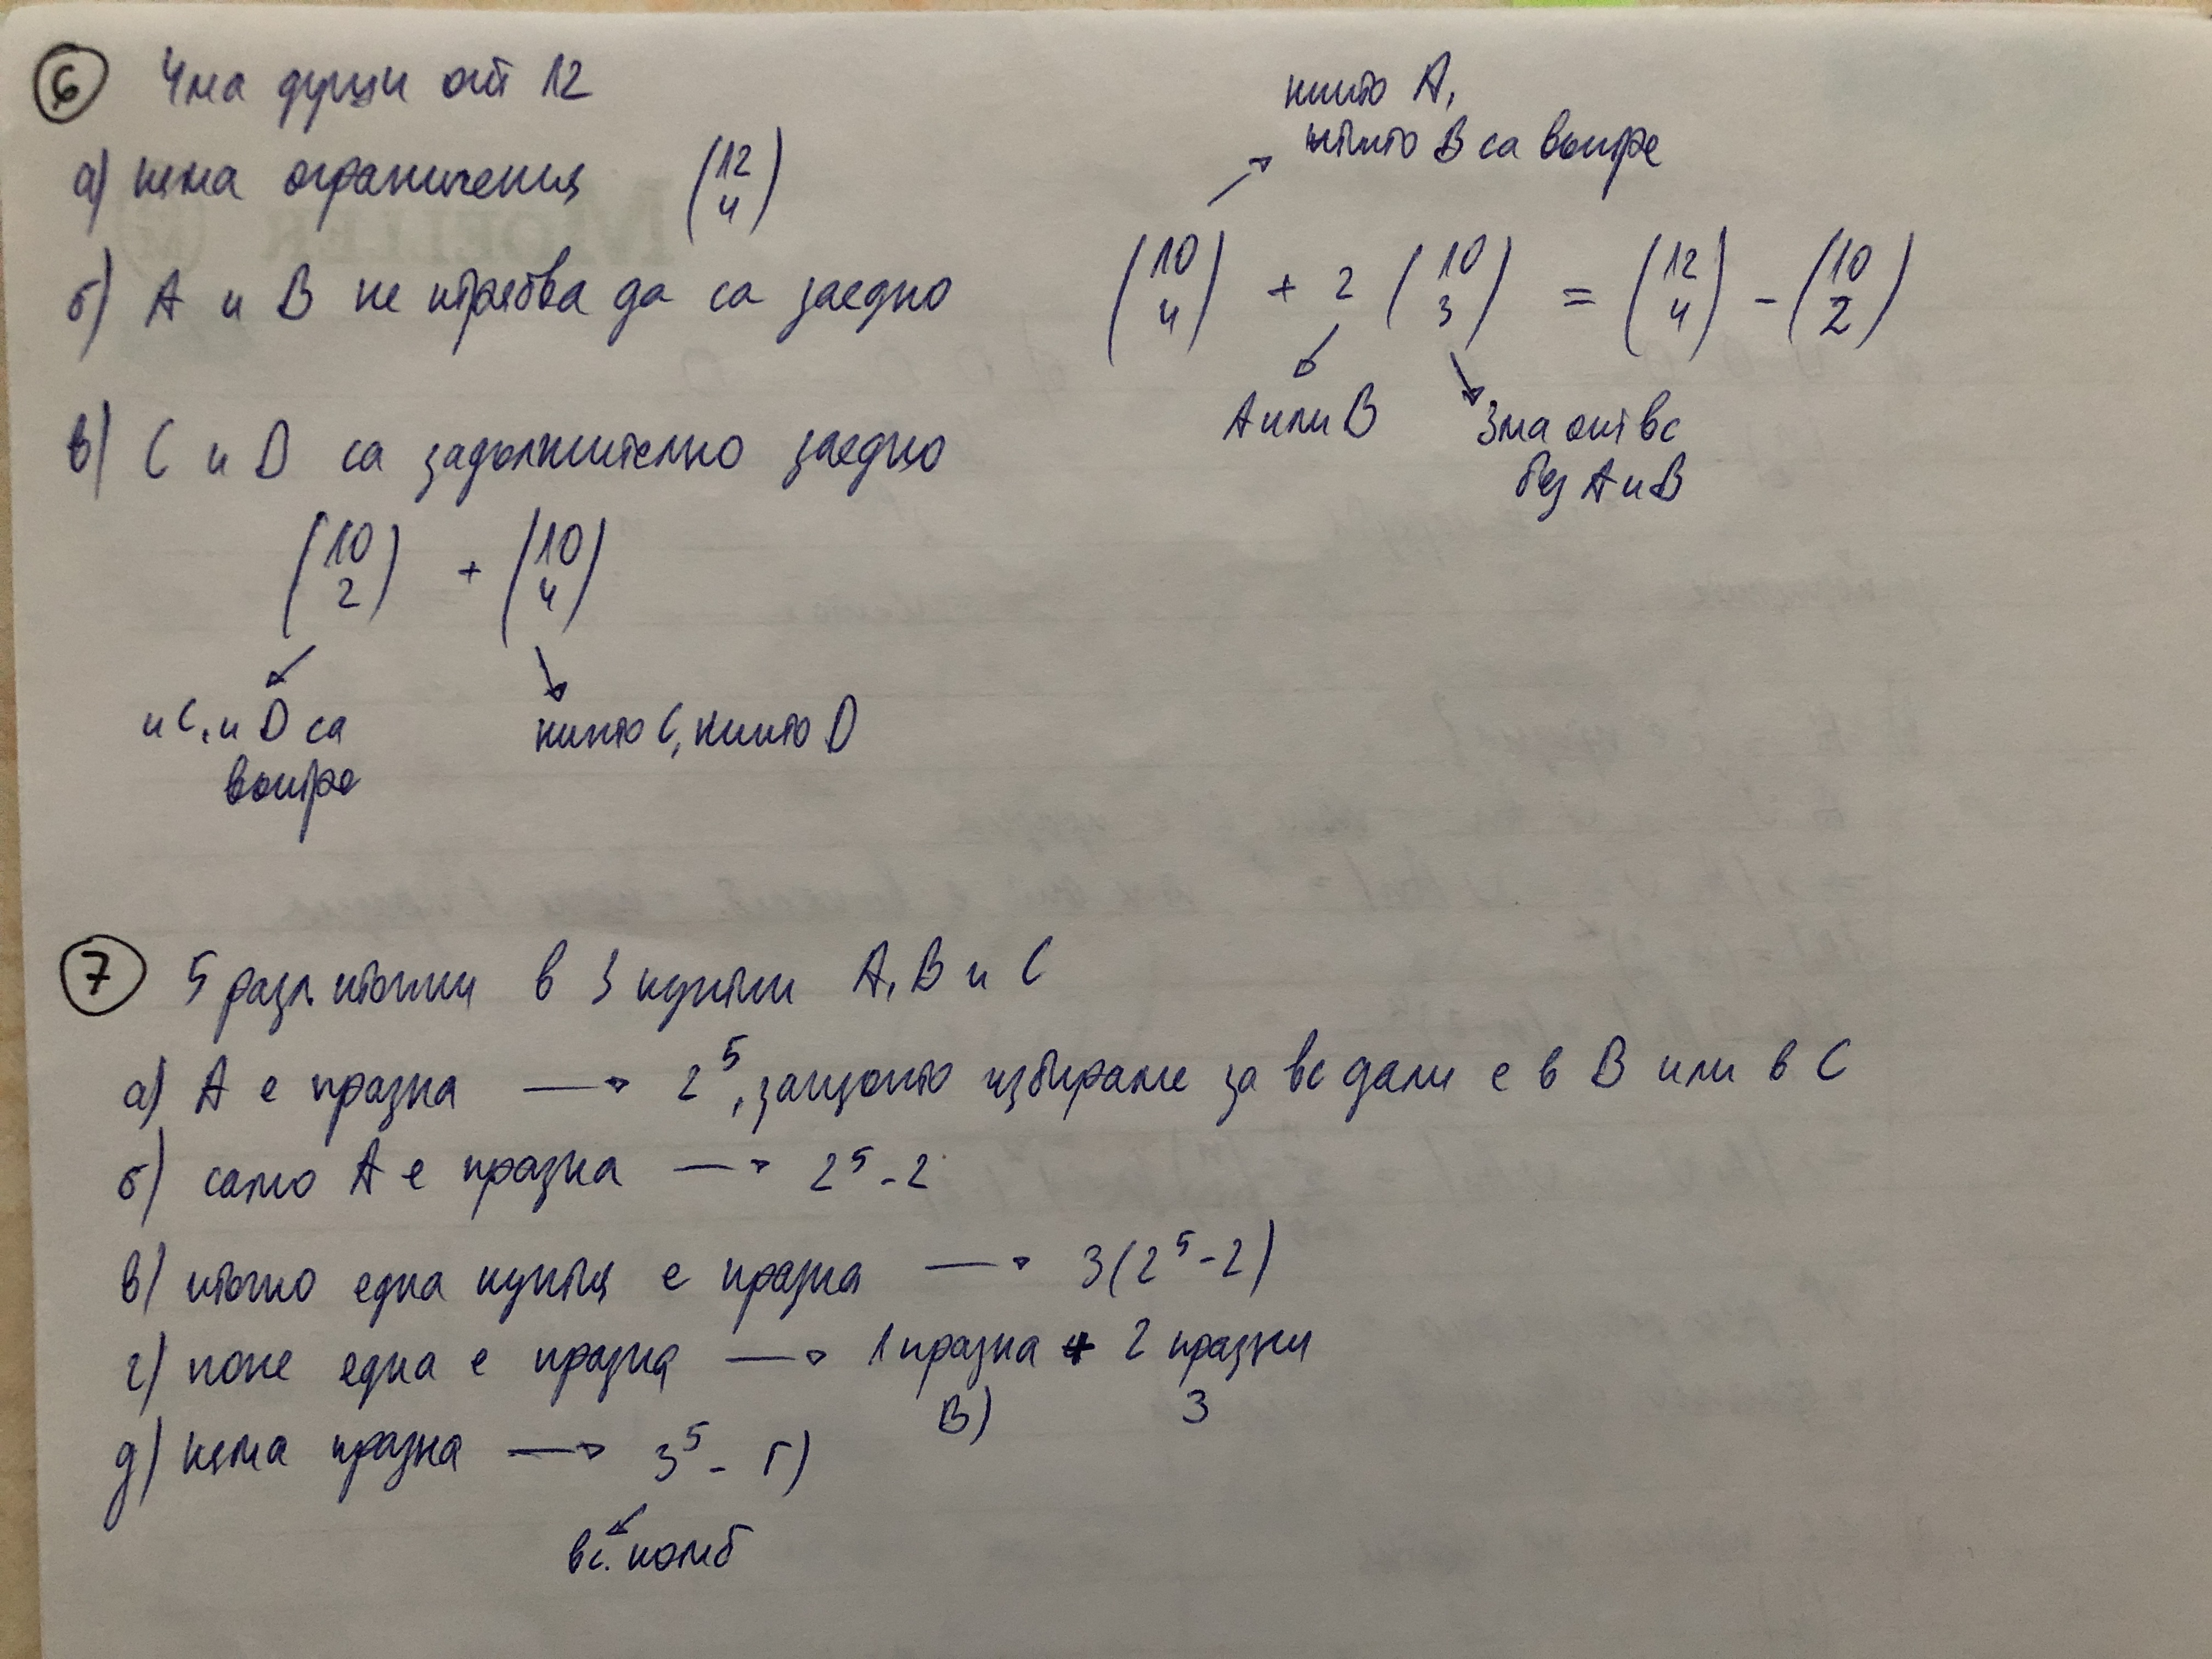 6 4ма души от 12
а) няма ограничения (12 4)
б) A и B не трябва да са заедно (10 4) + 2 (10 3) = (12 4) - (10 2)
нито A,
нито B са вътре
A или B
3ма от вс
без A и B
в) C и D са задължително заедно
(10 2) + (10 4)
и C, и D са
вътре
нито C, нито D
7 5 разл. топки в 3 кутии A, B и C
а) A е празна → 2⁵, защото избираме за вс дали е в B или в C
б) само A е празна → 2⁵ - 2
в) точно една кутия е празна → 3(2⁵ - 2)
г) поне една е празна → 1 празна + 2 празни
В) 3
д) няма празна → 3⁵ - Г)
вс. комб